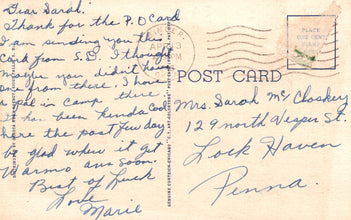 Dear Sarah.
Thank for the P.O Card
I am sending you this
Card from S.D. I thought
maybe you didn't have
one from there. I have
a pal in camp there
It has been kinda cool
here the past few days
be glad when it get
Warmo ans soon.
Best of luck
Love
Marie
POST CARD
PLACE
ONE CENT
STAMP
Mrs. Sarah Mc Closkery
129 north Vesper St.
Lock Haven
Penna.